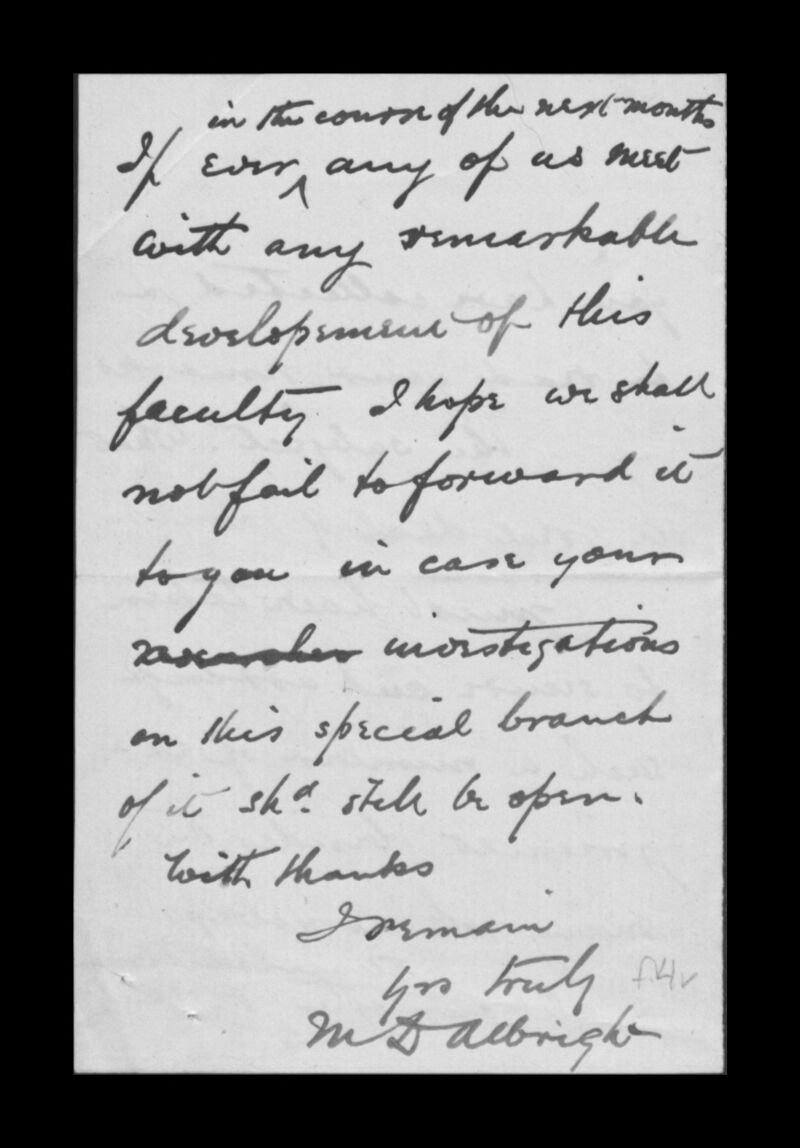 in the course of the next months
If ever ^ any of us meet
with any remarkable
developement of this
faculty I hope we shall
not fail to forward it
to you in case your
researches investigations
on this special branch
of it shd. still be open.
With thanks
I remain
yrs truly
M D Albright
f.4v